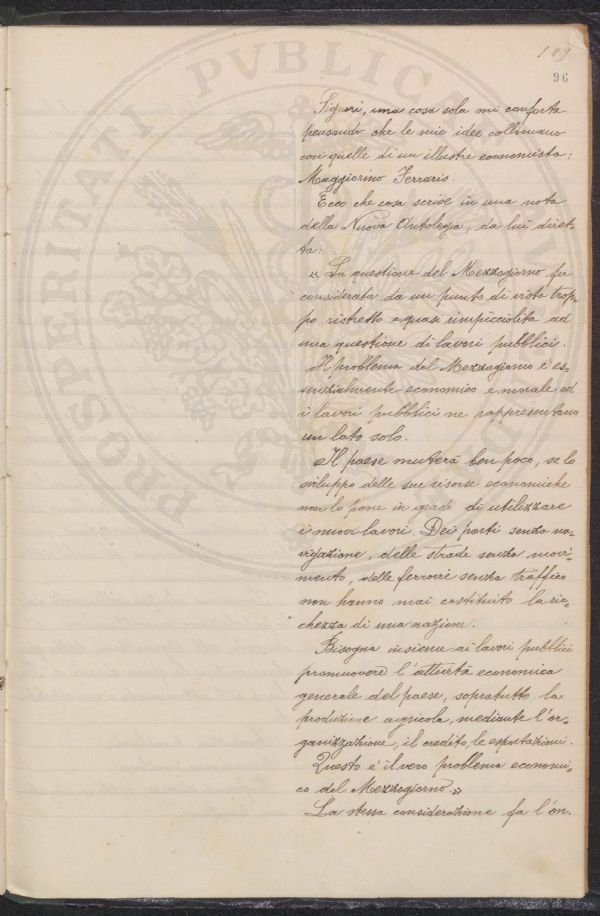 189
96
PROSPERITATI PUBLICAE
Signori, una cosa sola mi conforta
pensando che le mie idee collimano
con quelle di un illustre economista:
Maggiorino Ferraris.
Ecco che cosa scrive in una nota
della Nuova Antologia, da lui diret-
ta:
« La questione del Mezzogiorno fu
considerata da un punto di vista trop-
po ristretto e quasi impicciolita ad
una questione di lavori pubblici.
Il problema del Mezzogiorno è es-
senzialmente economico e morale ed
i lavori pubblici ne rappresentano
un lato solo.
Il paese muterà ben poco, se lo
sviluppo delle sue risorse economiche
non lo pone in grado di utilizzare
i nuovi lavori. Dei porti senza na-
vigazione, delle strade senza movi-
mento, delle ferrovie senza traffico
non hanno mai costituito la ric-
chezza di una nazione.
Bisogna insieme ai lavori pubblici
promuovere l'attività economica
generale del paese, sopratutto la
produzione agricola, mediante l'or-
ganizzazione, il credito, le esportazioni.
Questo è il vero problema economi-
co del Mezzogiorno. »
La stessa considerazione fa l'on.